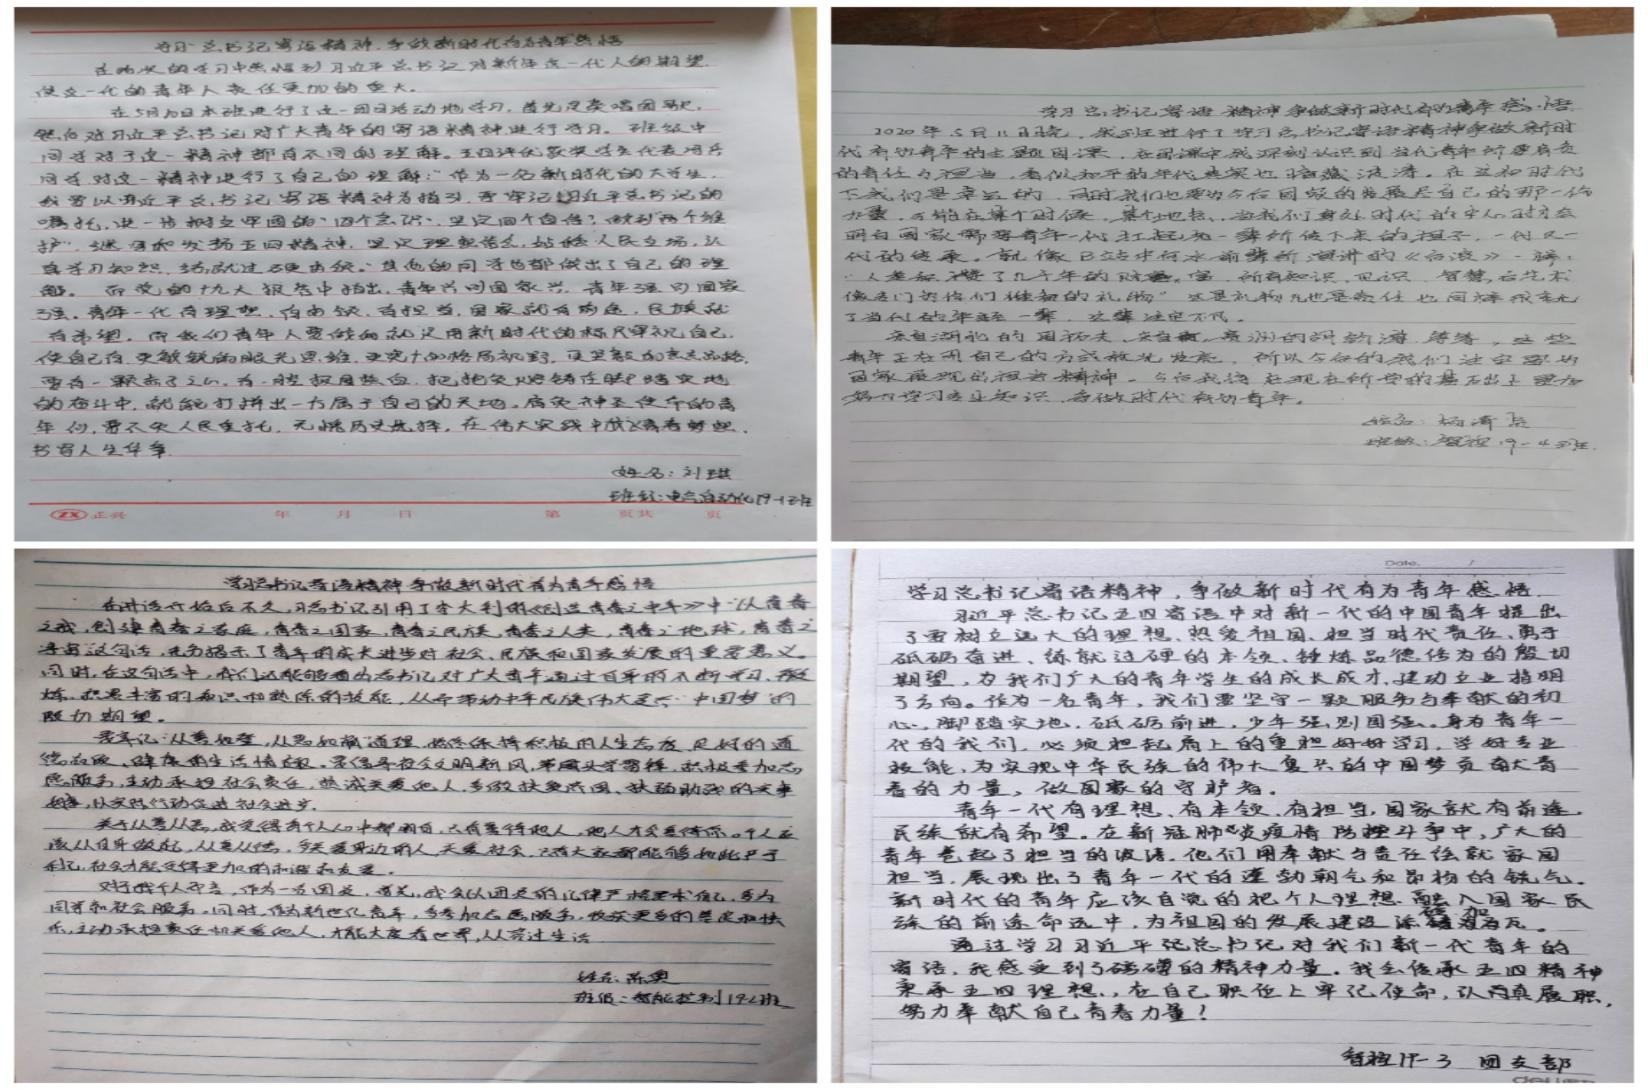 学习总书记寄语精神,争做新时代有为青年感悟
在此次的学习中感悟到习近平总书记对新年这一代人的期望,
使这一代的青年人责任更加的重大。
在5月10日本班进行了这一团日活动地学习,首先是奏唱团歌,
然后对习近平总书记对广大青年的寄语精神进行学习。班级中
同学对于这一精神都有不同的理解。
同学对这一精神进行了自己的理解:"作为一名新时代的大学生,
我要以习近平总书记寄语精神为指引,牢记习近平总书记的
嘱托,进一步树立牢固的"四个意识",坚定四个自信,做到两个维
护",继承和发扬五四精神,坚定理想信念,站稳人民立场,认
真学习知识,练就过硬本领。"其他的同学也都做出了自己的理
解。而党的十九大报告中指出,青年兴则国家兴,青年强则国家
强。青年一代有理想、有本领、有担当,国家就有前途,民族就
有希望。而我们青年人要做的就是用新时代的标尺审视自己,
使自己有更敏锐的眼光思维,更宽广的格局视野,更坚毅的意志品格,
要有一颗赤子之心,有一腔报国热血,把
的奋斗中,就能打拼出一方属于自己的天地。肩负神圣使命的青
年们,要不负人民重托,无愧历史选择,在伟大实践中放飞青春梦想,
书写人生华章
姓名:刘琪
班级:电气自动化19-1班
正兴 年 月 日 第 页共 页
学习总书记寄语精神争做新时代有为青年感悟
2020年5月11日晚,我班进行了学习总书记寄语精神争做新时
代有为青年的主题团课,在团课中我深刻认识到当代青年所要肩负
的责任与担当,看似和平的年代其实也暗藏波涛。在这和时代
下我们是幸运的,同时我们也要为今后国家的发展尽自己的那一份
力量,可能在某个时候,某个地点,当我们身处时代的中心时才会
明白国家需要青年一代扛起先一辈所传下来的担子,一代又一
代的传承。就像B站中何冰前辈所演讲的《后浪》一样:
"人类积攒了几千年的财富,所有知识、见识、智慧和艺术
像是专门为你们准备的礼物"
了当代的年轻一辈,这辈注定不凡。
来自湖北的
青年正在用自己的方式散光发热,所以今后的我们注定要为
国家展现出担当精神。今后我将在现在所学的基础上更加
努力学习专业知识,争做时代有为青年。
姓名:杨
班级:智控19-4班
学习总书记寄语精神争做新时代有为青年感悟
在讲话开始后不久,习总书记引用了李大钊的《创造青春之中华》中"以青春
之我,创建青春之家庭,青春之国家,青春之民族,青春之人类,青春之地球,青春之
宇宙这句话,充分揭示了青年的成长进步对社会、民族和国家发展的重要意义。
同时,在这句话中,我们还能够看出总书记对广大青年通过百年的不断学习、锻
炼、积累丰富的知识和熟练的技能,从而带动中华民族伟大复兴中国梦的
殷切期望。
我牢记"从善如登,从恶如崩"道理,始终保持积极的人生态度、良好的道
德品质、健康的生活情趣。要倡导社会文明新风,带头学雷锋,积极参加志
愿服务,主动承担社会责任,热诚关爱他人,多做扶贫济困、扶弱助残的实事
好事,以实际行动促进社会进步。
关于从善从恶,我觉得每个人心中都明白,只有善待他人,他人才会善待你。个人应
该从自身做起,从善从德,多关爱身边的人,关爱社会,只有大家都能够如此严于
律己,社会才能变得更加的和谐和友爱。
对于我个人而言,作为一名团员,首先,我会以团员的纪律严格要求自己,多为
同学和社会服务。同时,作为新世纪青年,多参加志愿服务,收获更多的善良和快
乐,主动承担责任和关爱他人,才能大度看世界,从容过生活
姓名:陈奥
班级:智能控制19-2班
Date. /
学习总书记寄语精神,争做新时代有为青年感悟.
习近平总书记五四寄语中对新一代的中国青年提出
了要树立远大的理想、热爱祖国、担当时代责任、勇于
砥砺奋进、练就过硬的本领、锤炼品德修为的殷切
期望,为我们广大的青年学生的成长成才,建功立业指明
了方向。作为一名青年,我们要坚守一颗服务与奉献的初
心,脚踏实地,砥砺前进,少年强,则国强。身为青年一
代的我们,必须担起肩上的重担好好学习,学好专业
技能,为实现中华民族的伟大复兴的中国梦贡献青
春的力量,做国家的守护者。
青年一代有理想、有本领、有担当,国家就有前途,
民族就有希望。在新冠肺炎疫情防控斗争中,广大的
青年卷起了担当的波涛,他们用奉献与责任绘就家国
担当,展现出了青年一代的蓬勃朝气和昂扬的锐气。
新时代的青年应该自觉的把个人理想融入国家民
族的前途命运中,为祖国的发展建设添砖加瓦。
通过学习习近平记总书记对我们新一代青年的
寄语,我感受到了磅礴的精神力量。我会传承五四精神
秉承五四理想,在自己职位上牢记使命,认真履职,
努力奉献自己青春力量!
智控19-3 团支部